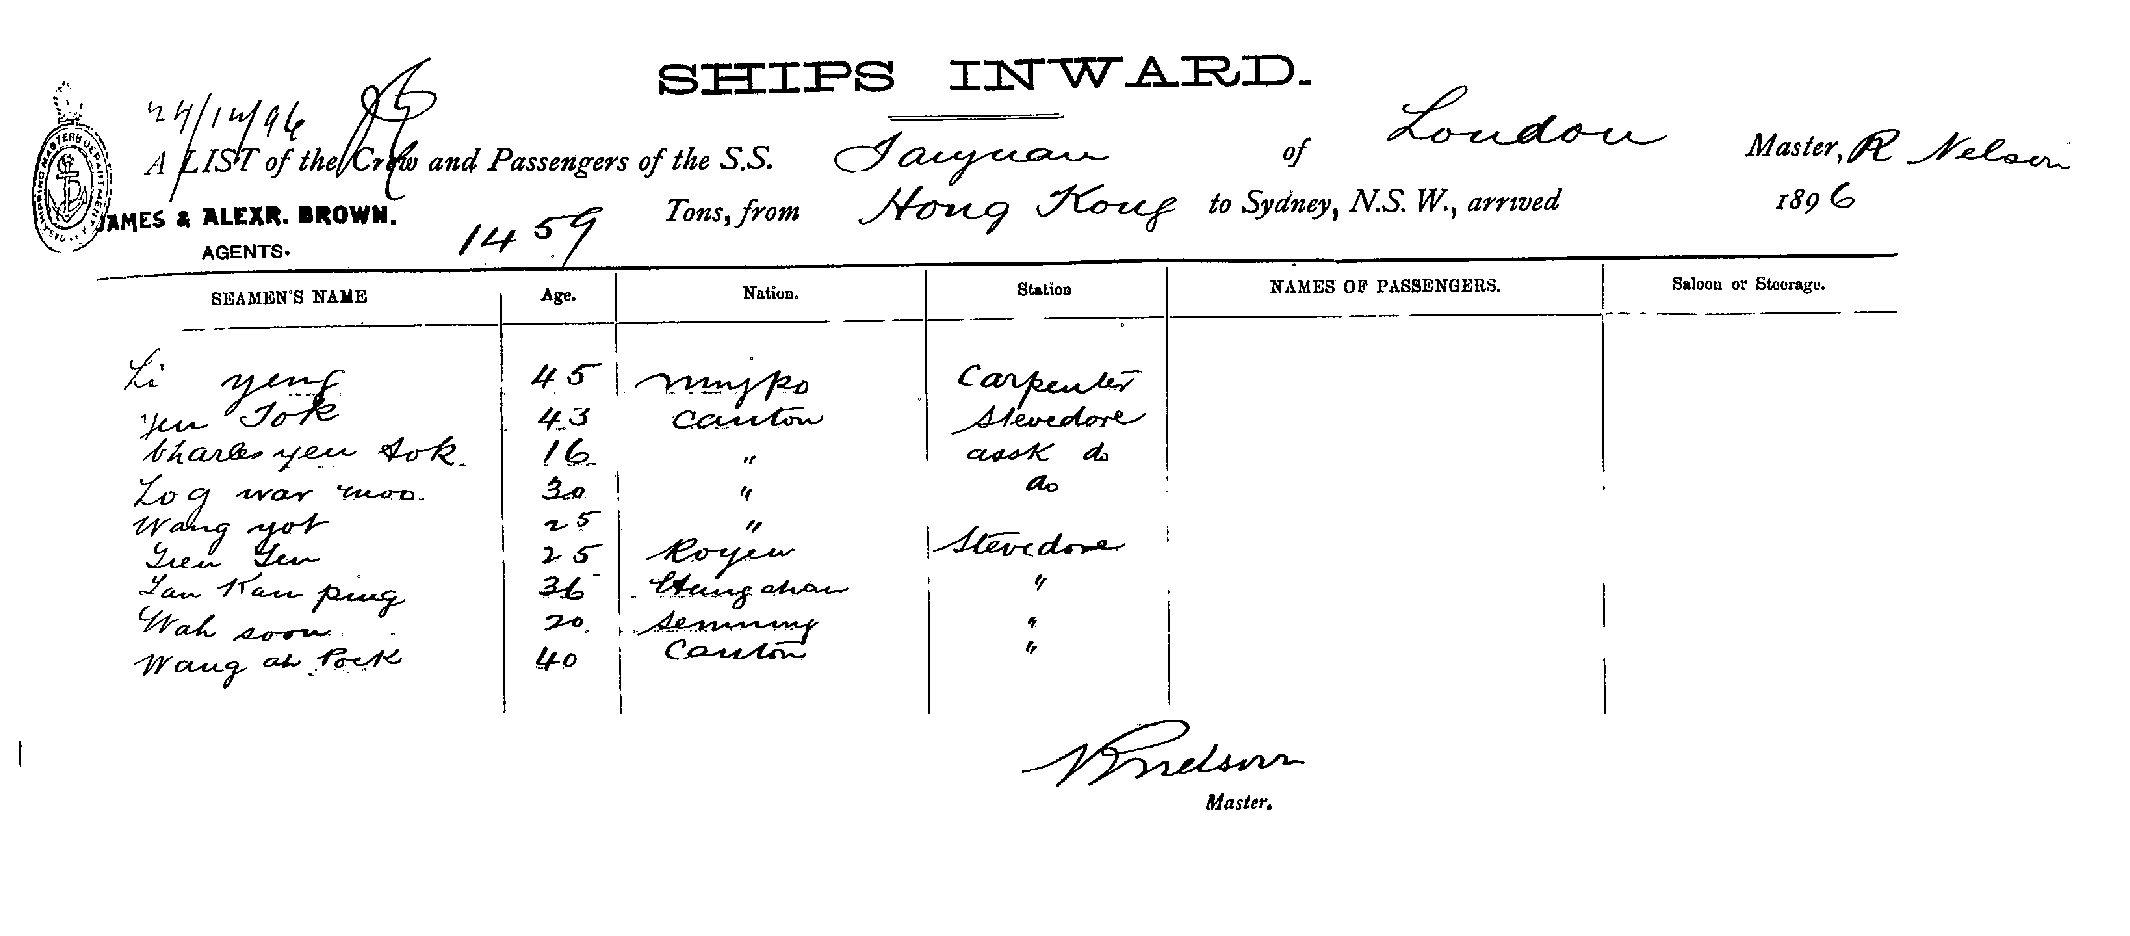 SHIPS INWARD.
24/12/96
A LIST of the Crew and Passengers of the S.S. Taiyuan of London Master, R Nelson
JAMES & ALEXR. BROWN.
AGENTS.
1459 Tons, from Hong Kong to Sydney, N.S.W., arrived 1896
SEAMEN'S NAME Age. Nation. Station NAMES OF PASSENGERS. Saloon or Steerage.
Li yeng 45 Ningpo Carpenter
Yen Tok 43 Canton Stevedore
Charles yen Tok. 16 " asst do
Log war moo. 30 " do
Wang yot 25 "
25 Stevedore
Tan Kan ping 36 "
Wah soon 20 "
Wang ah Pock 40 Canton "
R Nelson
Master.